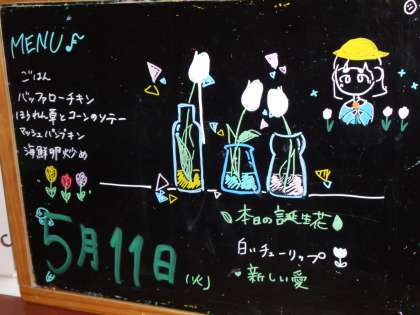 MENU♪
ごはん
バッファローチキン
ほうれん草とコーンのソテー
マッシュパンプキン
海鮮卵炒め
5月11日
(火)
本日の誕生花
白いチューリップ
新しい愛